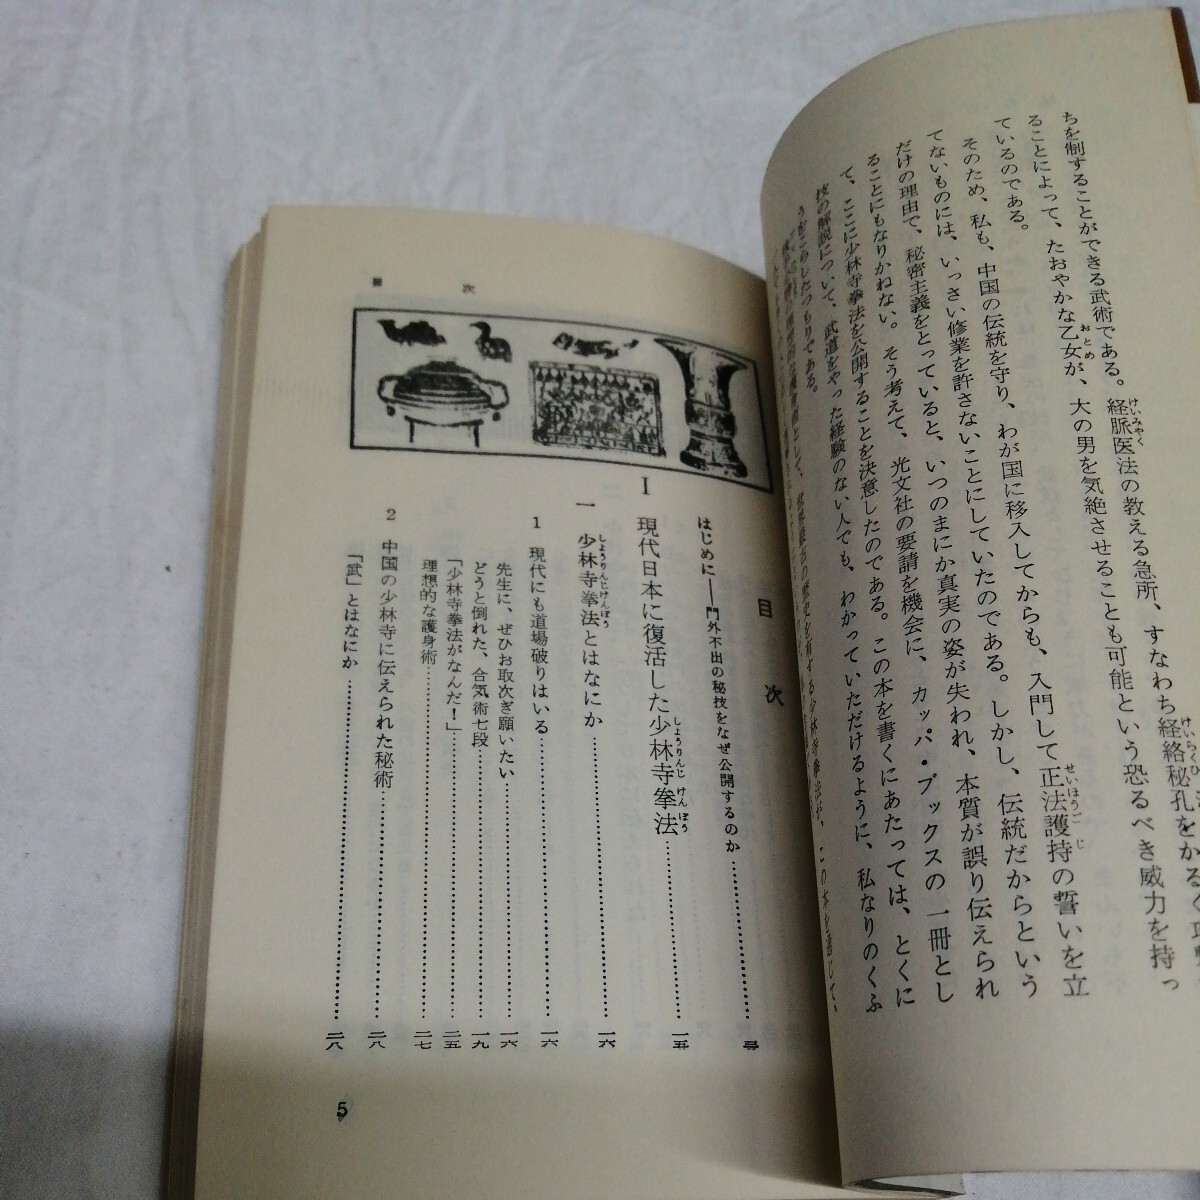 ちを制することができる武術である。経脈医法の教える急所、すなわち経絡秘孔をかるく
ることによって、たおやかな乙女が、大の男を気絶させることも可能という恐るべき威力を持っ
ているのである。
そのため、私も、中国の伝統を守り、わが国に移入してからも、入門して正法護持の誓いを立
てないものには、いっさい修業を許さないことにしていたのである。しかし、伝統だからという
だけの理由で、秘密主義をとっていると、いつのまにか真実の姿が失われ、本質が誤り伝えられ
ることにもなりかねない。そう考えて、光文社の要請を機会に、カッパ・ブックスの一冊とし
て、ここに少林寺拳法を公開することを決意したのである。この本を書くにあたっては、とくに
技の解説について、武道をやった経験のない人でも、わかっていただけるように、私なりのくふ
うをこらしたつもりである。
として、世界最古の歴史を有する少林寺拳法が、この本を通じて、
目次
目 次
はじめに——門外不出の秘技をなぜ公開するのか……… 三
I 現代日本に復活した少林寺拳法……… 一五
一 少林寺拳法とはなにか……… 一六
1 現代にも道場破りはいる……… 一六
先生に、ぜひお取次ぎ願いたい……… 一六
どうと倒れた、合気術七段……… 一九
「少林寺拳法がなんだ!」……… 二五
理想的な護身術……… 二七
2 中国の少林寺に伝えられた秘術……… 二八
「武」とはなにか……… 二八
5